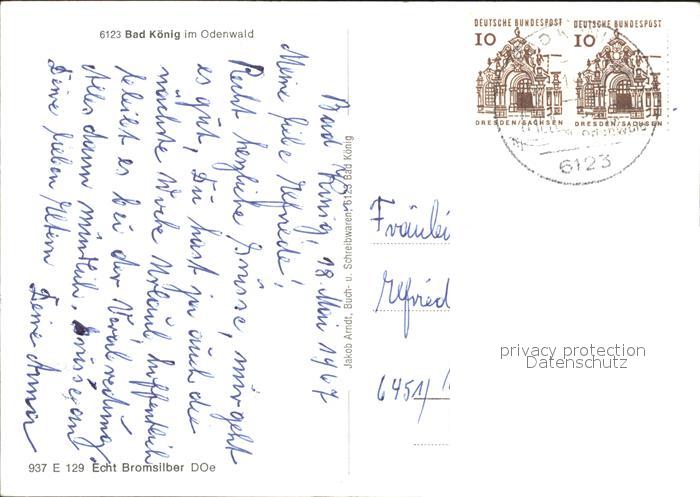 6123 Bad König im Odenwald
Bad König, 18. Mai 1967
Meine liebe Elfriede!
Recht herzliche Grüsse, mir geht
es gut, Du hast ja auch die
nächste Woche Urlaub hoffentlich
bleibt es bei der Verabredung
Alles dann mündlich, Grüsse an
Deine lieben Eltern Deine Anna
937 E 129 Echt Bromsilber DOe
Jakob Arndt, Buch- u. Schreibwaren, 6123 Bad König
DEUTSCHE BUNDESPOST
10
DRESDEN/SACHSEN
DEUTSCHE BUNDESPOST
10
DRESDEN/SACHSEN
6123
Fräulei
Elfried
6451/
privacy protection
Datenschutz